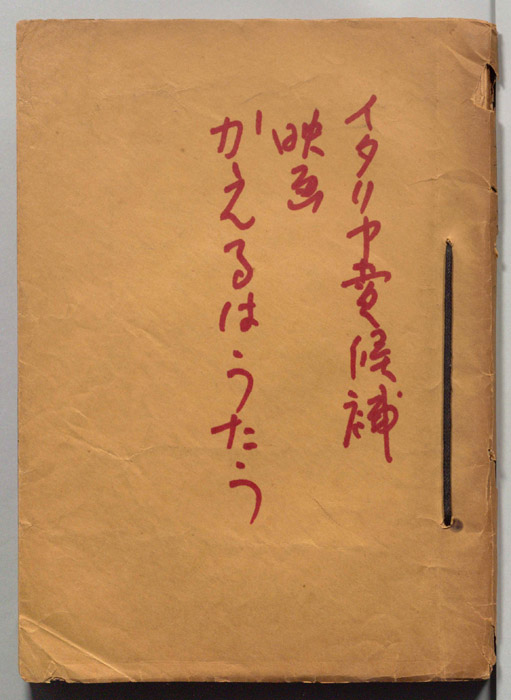 イタリヤ賞候補
映画
かえるはうたう